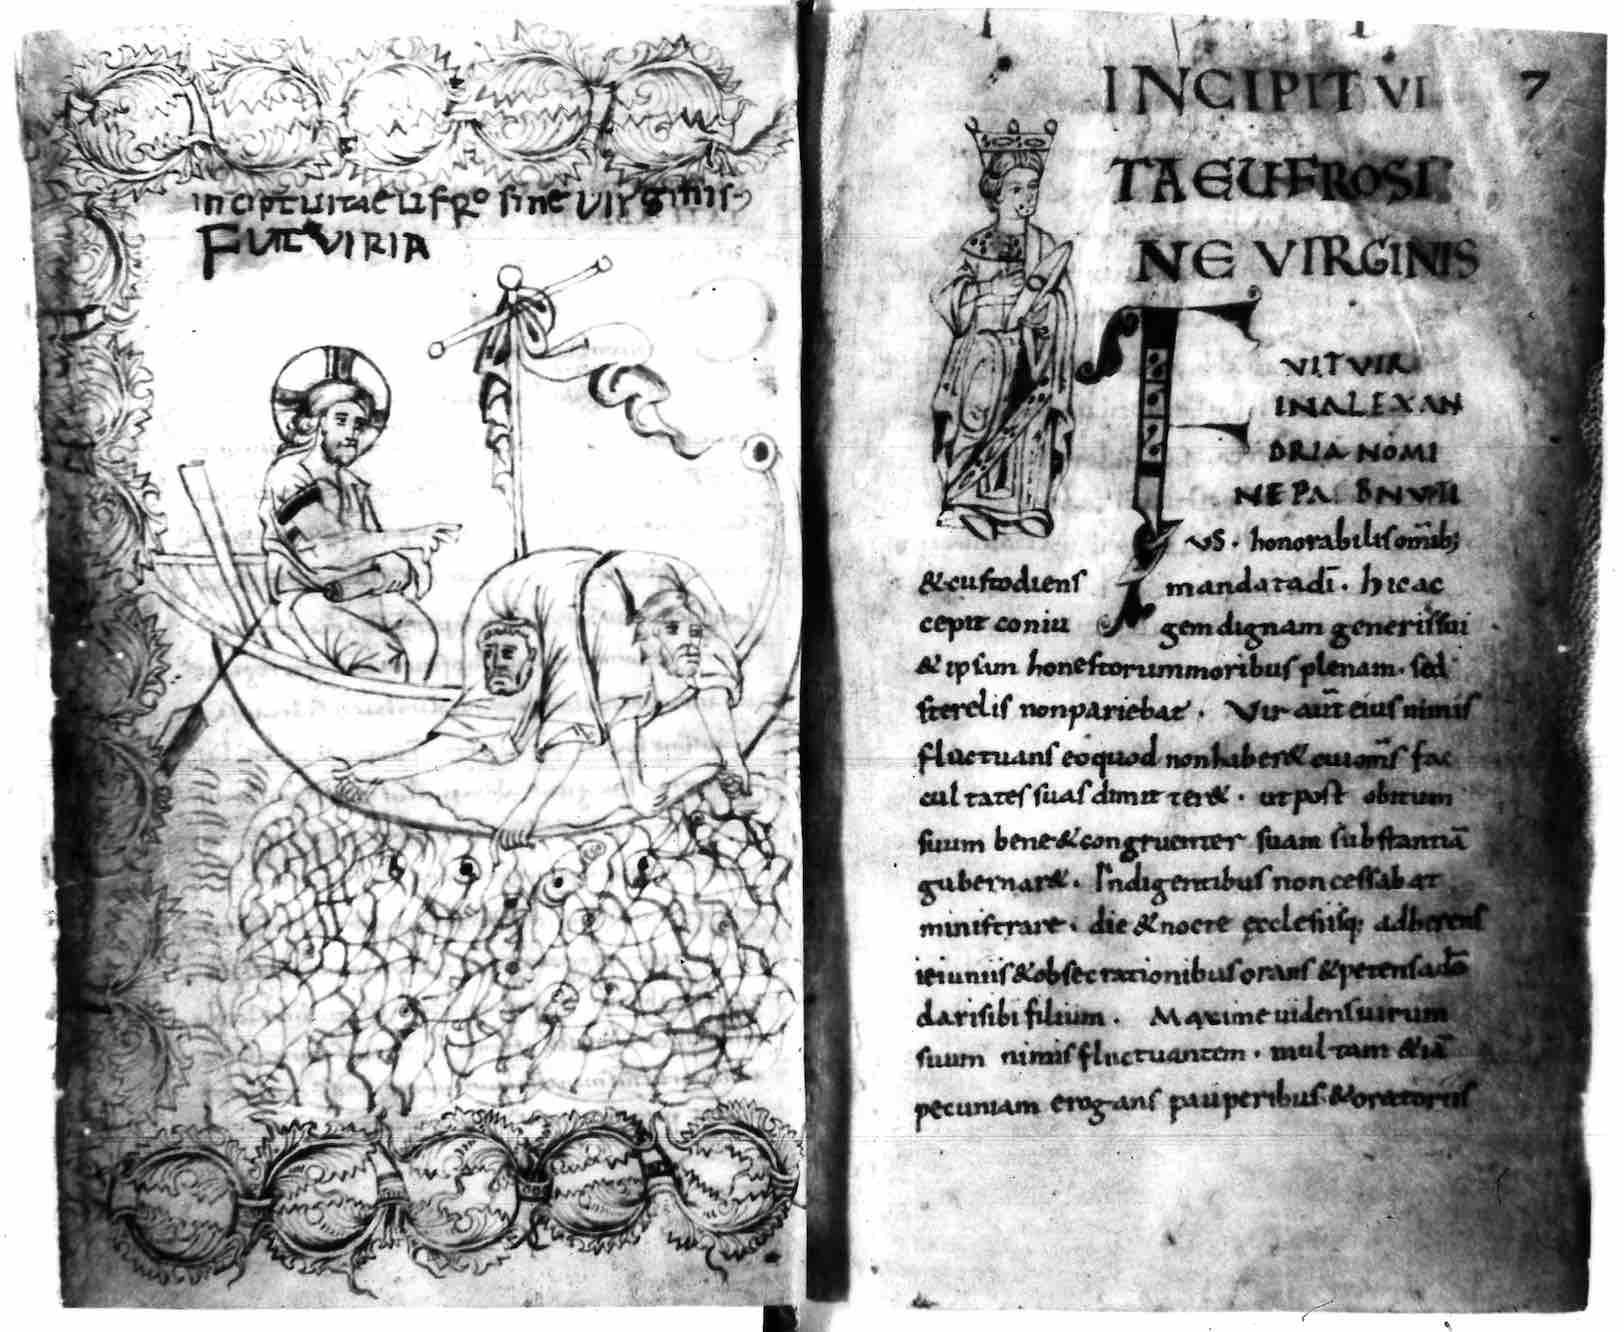 inciptuitaeufrosine virginis
FUIT VIRIA
INCIPIT VI
7
TA EUFROSI
NE VIRGINIS
FVITVIR
INALEXAN
DRIA NOMI
NE PA BNVTI
VS · honorabilis om̄ib;
& custodiens mandata dī · hic ac
cepit coniu gem dignam generis sui
& ipsam honestorum moribus plenam · sed
sterelis non pariebat · Vir aūt eius nimis
fluctuans eo quod non haber& cui om̄s fac
cultates suas dimitter& · ut post obitum
suum bene & congruenter suam substantiā
gubernar& · Indigentibus non cessabat
ministrare · die & nocte ecclesiisq; adherens
ieiuniis & obsecrationibus orans & petens a dō
dari sibi filium · Maxime uidens uirum
suum nimis fluctuantem · multam & iā
pecuniam erogans pauperibus & oratoriis